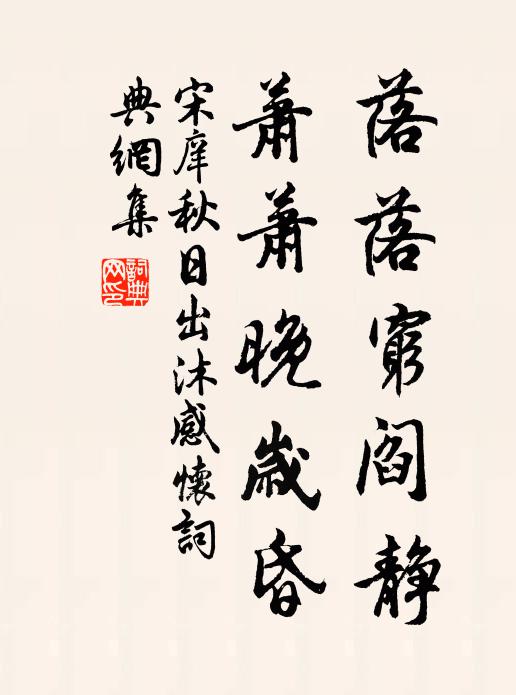 落落窮閻靜
蕭蕭晚歲昏
宋庠秋日出沐感懷詞
典網集
詞典網印